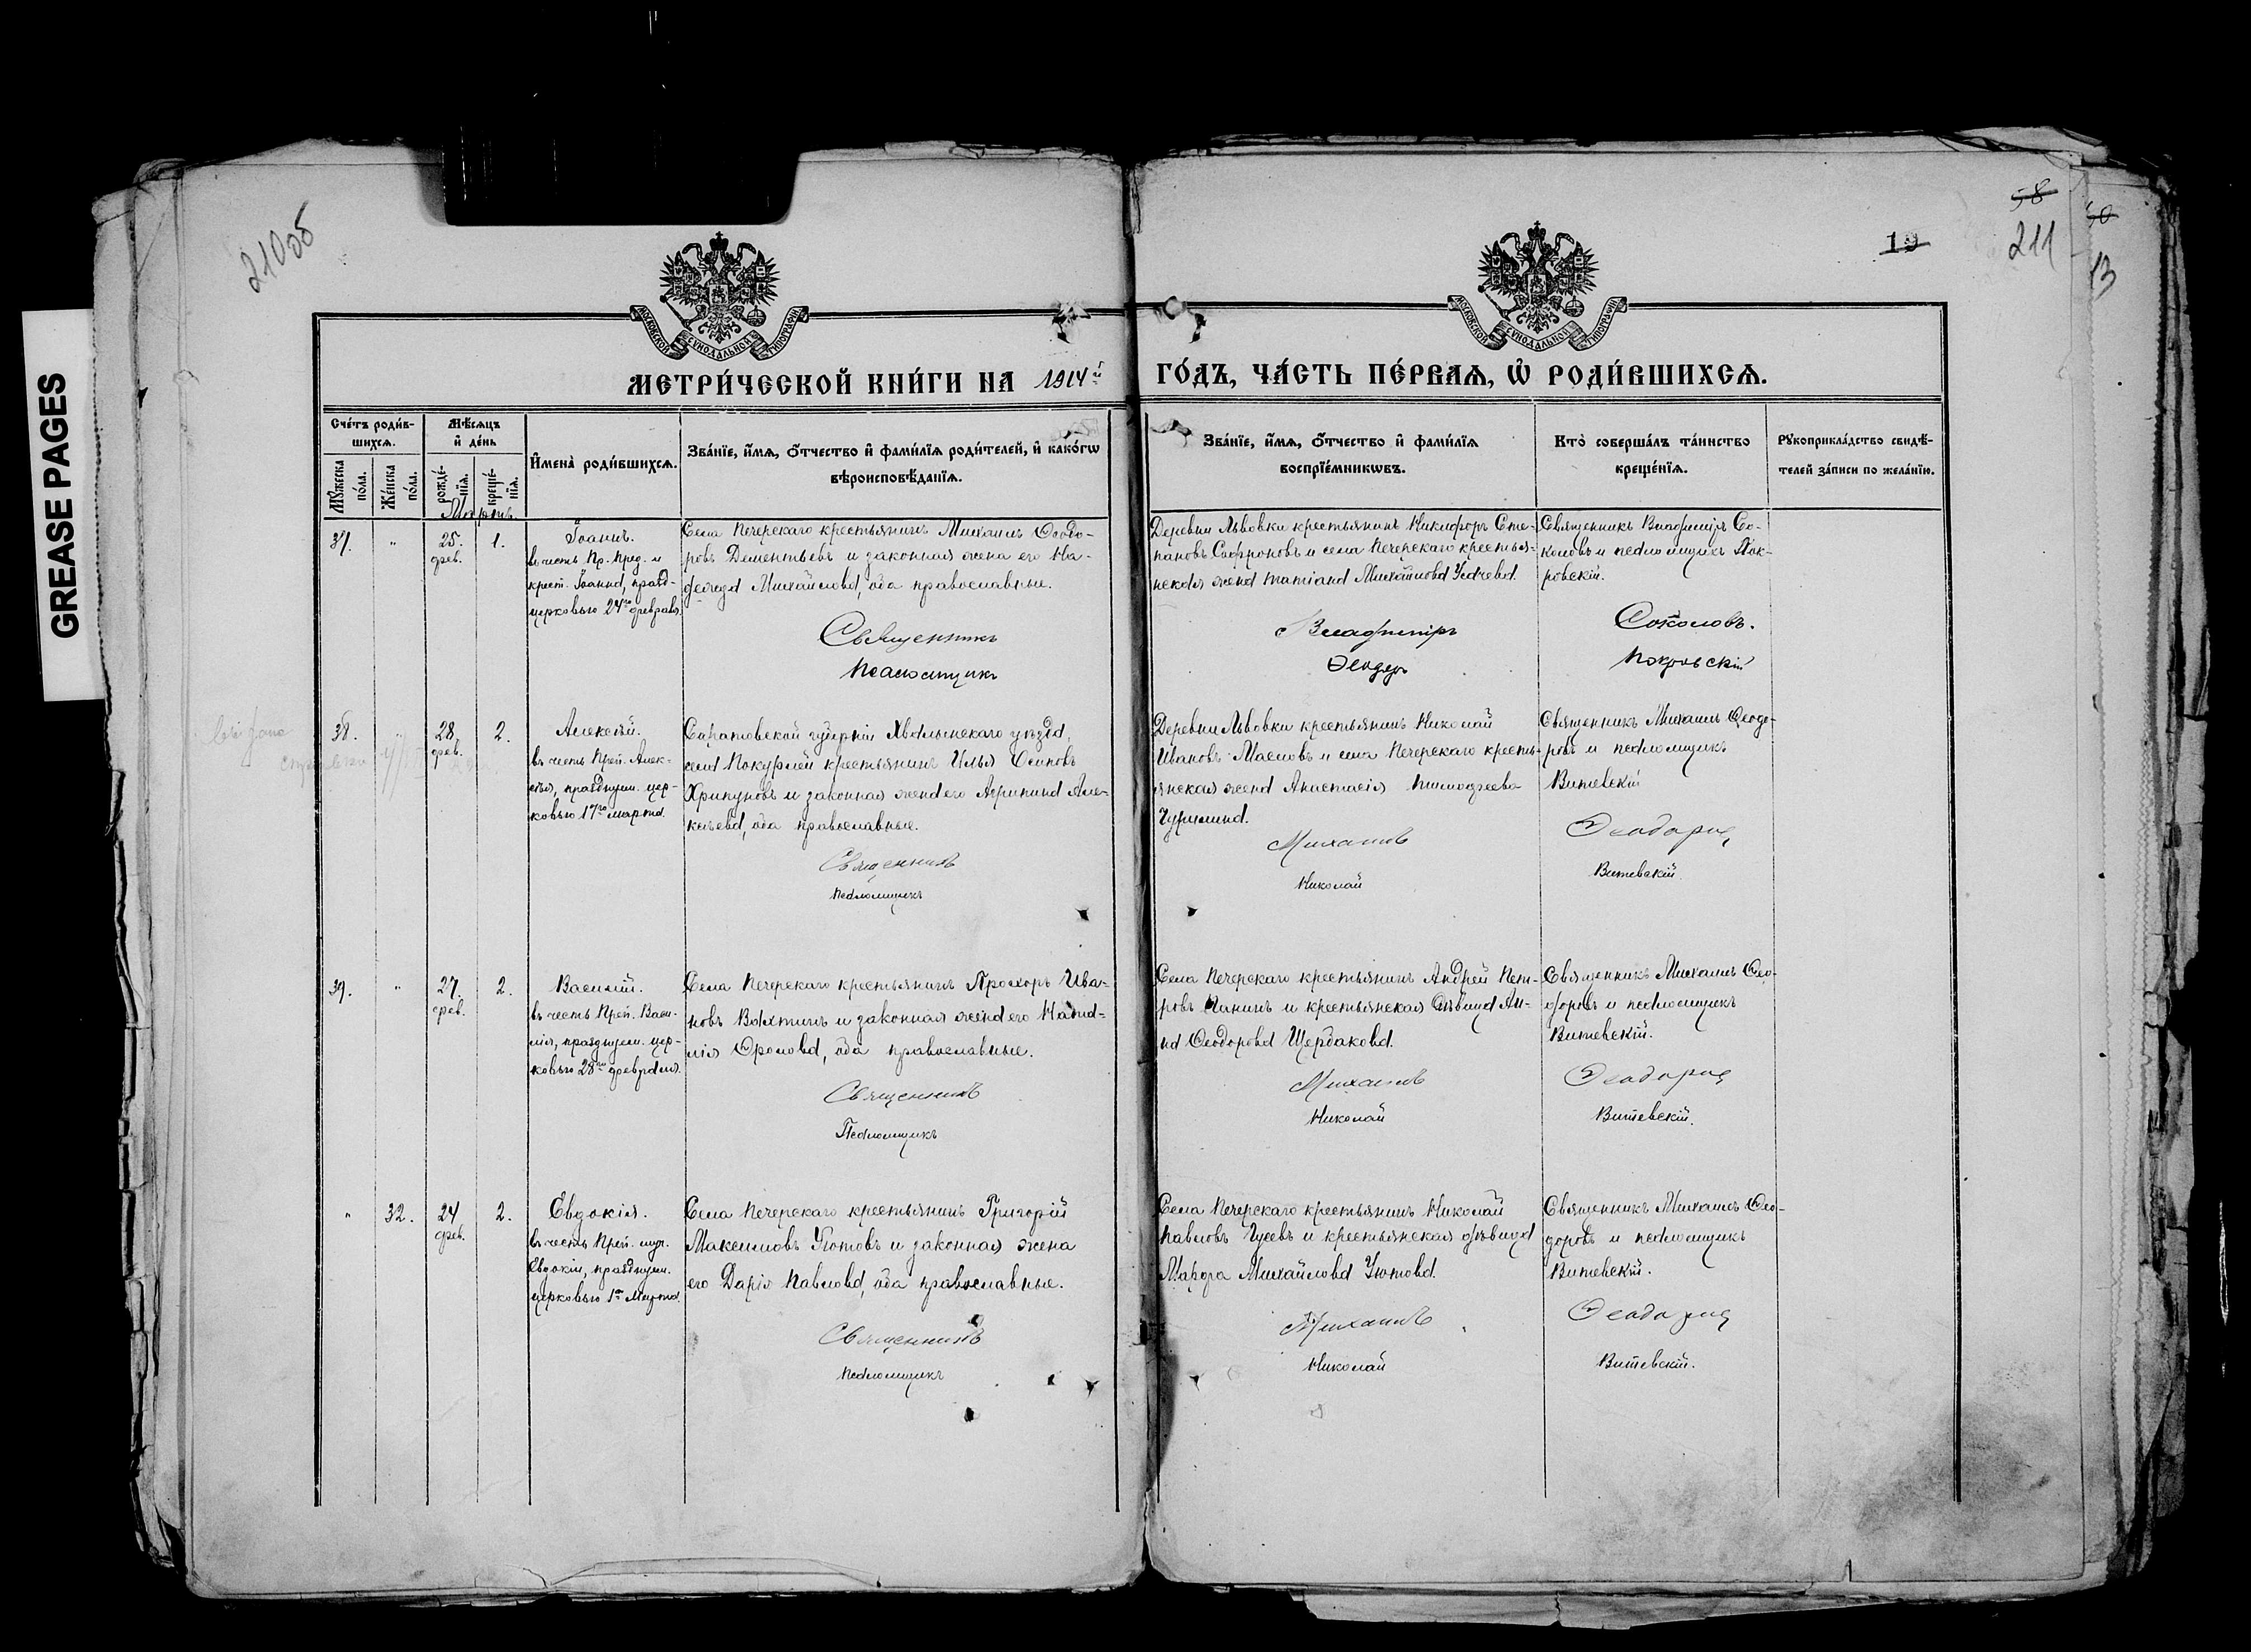 GREASE PAGES
210об
58
19
211
13
МОСКОВСКОЙ СѴНОДАЛЬНОЙ ТИПОГРАФІИ
МОСКОВСКОЙ СѴНОДАЛЬНОЙ ТИПОГРАФІИ
МЕТРИ́ЧЕСКОЙ КНИ́ГИ НА 1914й ГО́ДЪ, ЧА́СТЬ ПЕ́РВАѦ, Ѡ҆ РОДИ́ВШИХСѦ.
Сче́тъ роди́в-
шихсѧ.
Мѣ́сѧцъ
и҆ де́нь
Мꙋ́жеска по́ла.
Же́нска по́ла.
рожде́-нїѧ.
креще́-нїѧ.
И҆мена̀ роди́вшихсѧ.
Зва́нїе, и҆́мѧ, ѻ҆́тчество и҆ фами́лїѧ роди́телей, и҆ како́гѡ
вѣроисповѣ́данїѧ.
Зва́нїе, и҆́мѧ, ѻ҆́тчество и҆ фами́лїѧ
воспрїе́мникѡвъ.
Кто̀ соверша́лъ та́инство
креще́нїѧ.
Рꙋкоприкла́дство свидѣ́-
телей за́писи по жела́нїю.
Мартъ
37. " 25. фев. 1.
Іоаннъ.
въ честь Пр. Пред. и
крест. Іоанна, празд-
церковью 24го февраля.
Села Печерскаго крестьянинъ Михаилъ Ѳеодо-
ровъ Дементьевъ и законная жена его На-
дежда Михайлова, оба православные.
Священникъ
Псаломщикъ
Деревни Львовки крестьянинъ Никифоръ Сте-
пановъ Сафроновъ и села Печерскаго крестья-
нская жена Татіана Михайлова
Владиміръ
Ѳеодоръ
Священникъ Владиміръ Со-
коловъ и псаломщикъ Пок-
ровскій.
Соколовъ.
Покровскій
38. " 28. фев. 2.
Алексѣй.
въ честь Преп. Алек-
сѣя, празднуем. цер-
ковью 17го марта.
Саратовской губерніи Хвалынскаго уѣзда,
села Покурлей крестьянинъ Илья Осиповъ
Хрипуновъ и законная жена его Агрипина Але-
ксѣева, оба православные.
Священникъ
Псаломщикъ
Деревни Львовки крестьянинъ Николай
Ивановъ Масловъ и села Печерскаго кресть-
янская жена Анастасія Тимофеева
Михаилъ
Николай
Священникъ Михаилъ Ѳеодо-
ровъ и псаломщикъ
Витевскій
Ѳеодоровъ
Витевскій.
39. " 27. фев. 2.
Василій.
въ честь Преп. Васи-
лія, празднуем. цер-
ковью 28го февраля.
Села Печерскаго крестьянинъ Прохоръ Ива-
новъ Вахтинъ и законная жена его Ната-
лія Фролова, оба православные.
Священникъ
Псаломщикъ
Села Печерскаго крестьянинъ Андрей Пет-
ровъ и крестьянская дѣвица Ан-
на Ѳеодорова Щердакова.
Михаилъ
Николай
Священникъ Михаилъ Ѳео-
доровъ и псаломщикъ
Витевскій.
Ѳеодоровъ
Витевскій.
" 32. 24 фев. 2.
Евдокія.
въ честь Преп. муч.
Евдокіи, празднуем.
церковью 1го Марта.
Села Печерскаго крестьянинъ Григорій
Максимовъ Утотовъ и законная жена
его Дарія Павлова, оба православные.
Священникъ
Псаломщикъ
Села Печерскаго крестьянинъ Николай
Павловъ Гусевъ и крестьянская дѣвица
Марѳа Михайлова
Михаилъ
Николай
Священникъ Михаилъ Ѳео-
доровъ и псаломщикъ
Витевскій.
Ѳеодоровъ
Витевскій.